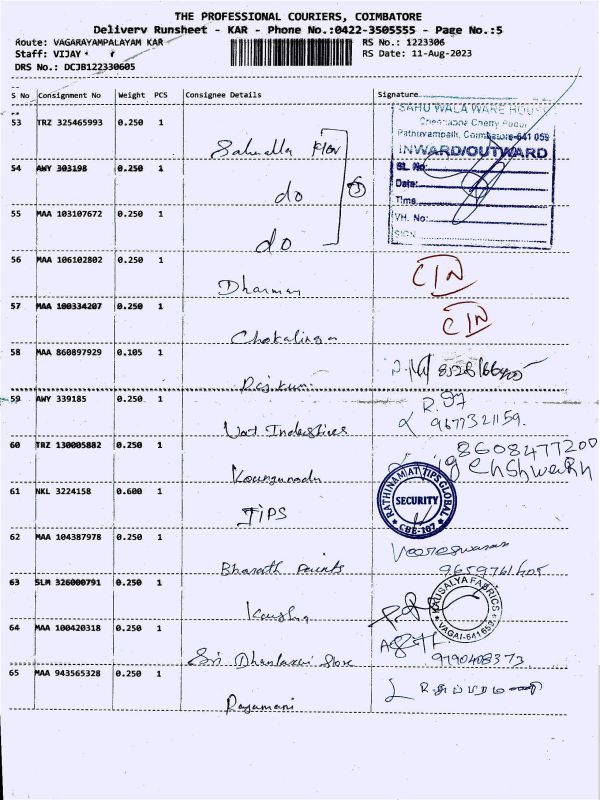 THE PROFESSIONAL COURIERS, COIMBATORE
Delivery Runsheet - KAR - Phone No.:0422-3505555 - Page No.:5
Route: VAGARAYAMPALAYAM KAR
RS No.: 1223306
Staff: VIJAY
RS Date: 11-Aug-2023
DRS No.: DCJB122330605
S No Consignment No Weight PCS Consignee Details Signature
53 TRZ 325465993 0.250 1
SAHU WALA WARE HOUSE
Chennappa Chetty Pudur
Pathuvampalli, Coimbatore-641 059
INWARD/OUTWARD
SL. No:
Date:
Time
VH. No:
SIGN
54 AWY 303198 0.250 1
do
55 MAA 103107672 0.250 1
do
56 MAA 106102802 0.250 1
Dharman
57 MAA 100334207 0.250 1
Chokalinga
58 MAA 860897929 0.105 1
Rajkumar
59 AWY 339185 0.250 1
Industries
9677321159.
60 TRZ 130005882 0.250 1
8608477200
Koungunadu
61 NKL 3224158 0.600 1
TIPS
RATHINAMIAT TIPS GLOBAL
SECURITY
CBE-107
62 MAA 104387978 0.250 1
Bharath Paints
Veereswaran
9659761405
63 SLM 326000791 0.250 1
KAUSALYA FABRICS
VAGAI-641 653
64 MAA 100420318 0.250 1
Sri Dhanlaxmi Store
9190408373
65 MAA 943565328 0.250 1
Rajamani